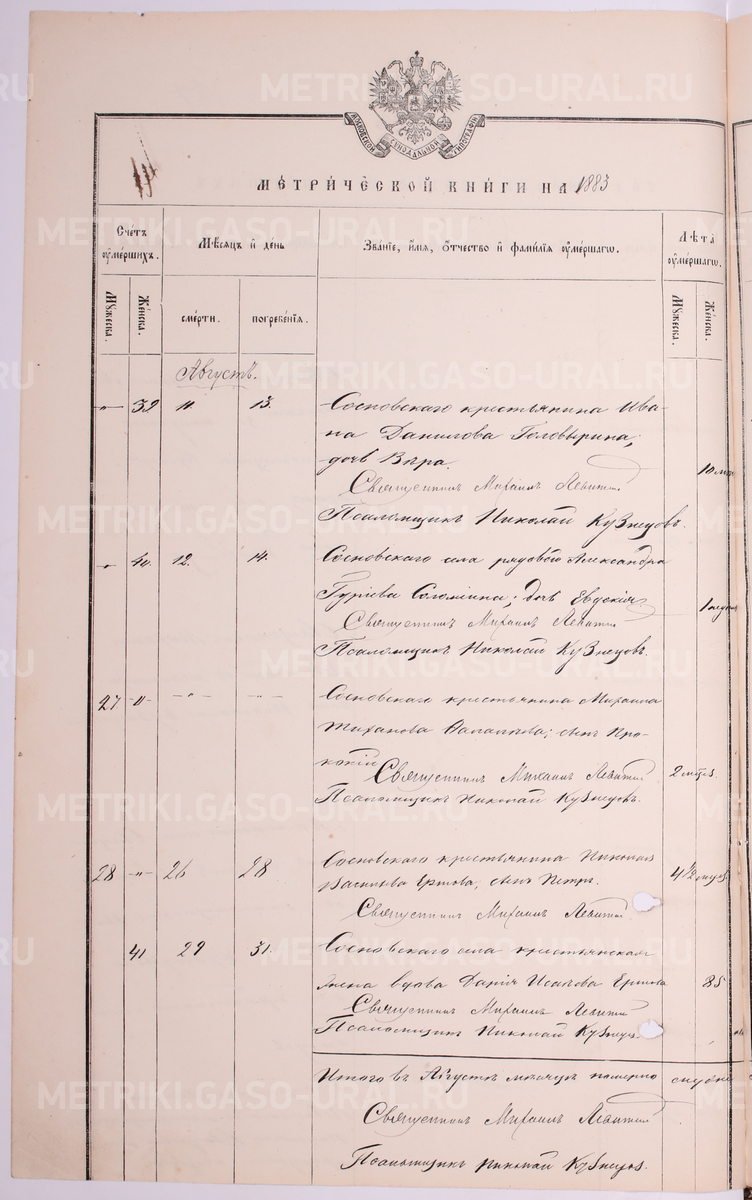 МОСКОВСКОЙ СУНОДАЛЬНОЙ ТИПОГРАФІИ
МЕТРИЧЕСКОЙ КНИГИ НА 1883
Счетъ оумершихъ.
Мѣсяцъ и день
Званіе, имя, отчество и фамилія оумершагω.
Лѣта оумершагω.
Мужеска.
Женска.
смерти.
погребенія.
Мужеска.
Женска.
Августъ.
„ 39 11. 13. Сосновскаго крестьянина Ива-
на Данилова Головырина,
дочь Вѣра. 10
Священникъ Михаилъ
Псаломщикъ Николай Кузнецовъ.
„ 40. 12. 14. Сосновскаго села рядовой Александра
Гуріева Соломина; дочь Евдокія 1
Священникъ Михаилъ
Псаломщикъ Николай Кузнецовъ.
27 „ — „ — — „ — Сосновскаго крестьянина Михаила
сынъ Про-
копій
Священникъ Михаилъ 2 мѣс.
Псаломщикъ Николай Кузнецовъ.
28 „ 26 28 Сосновскаго крестьянина Николая
Васильева Ершова; сынъ Петръ. 4½
Священникъ Михаилъ
41 29 31. Сосновскаго села крестьянская
жена вдова Дарія Исакова Ершова 85
Священникъ Михаилъ
Псаломщикъ Николай Кузнецовъ.
Итого въ Августѣ мѣсяцѣ померло
Священникъ Михаилъ
Псаломщикъ Николай Кузнецовъ.
METRIKI.GASO-URAL.RU